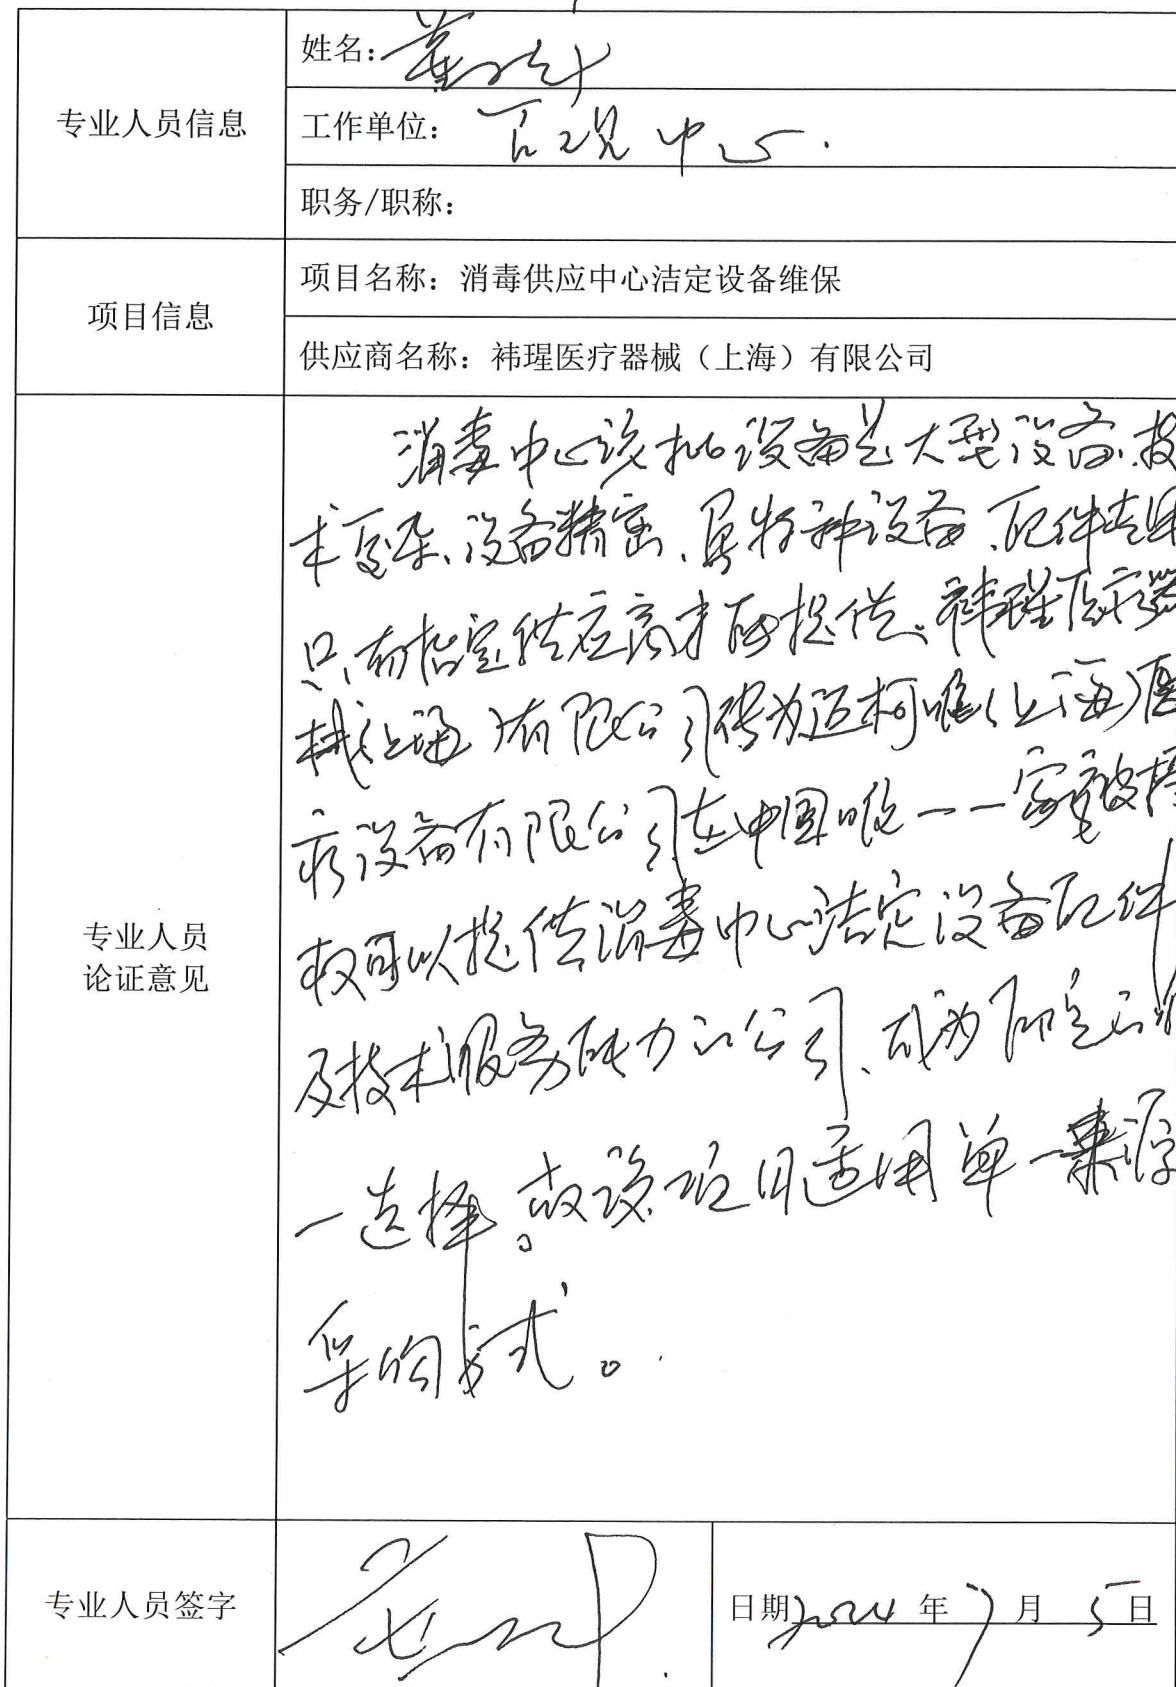 专业人员信息
姓名：
工作单位： 中心.
职务/职称：
项目信息
项目名称：消毒供应中心洁定设备维保
供应商名称：祎瑆医疗器械（上海）有限公司
专业人员
论证意见
消毒中心该批设备是大型设备、技
术复杂、设备精密、属特种设备、配件专用
只有指定供应商才能提供。祎瑆医疗器
械（上海）有限公司作为迈柯唯（上海）医
疗设备有限公司在中国唯一一家被授
权可以提供消毒中心洁定设备配件
及技术服务能力的公司、成为 的唯
一选择。故该项目适用单一来源
采购方式。
专业人员签字
日期2024 年 7 月 5 日